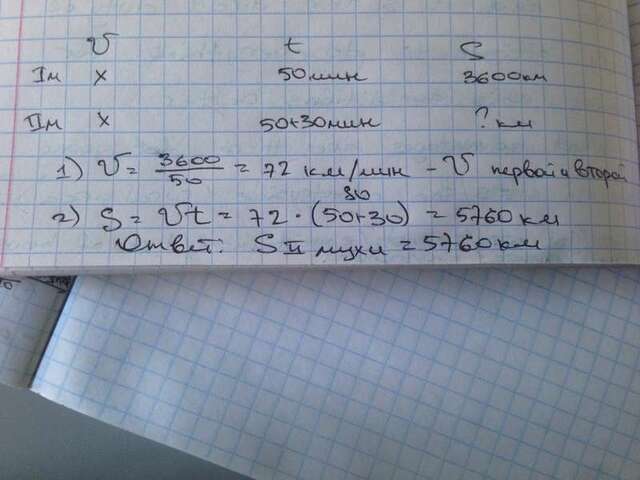 V t S
Iм x 50мин 3600км
IIм x 50+30мин ? км
1) V = 3600/50 = 72 км/мин - V первой и второй
80
2) S = Vt = 72 · (50+30) = 5760 км
Ответ: S II мухи = 5760 км